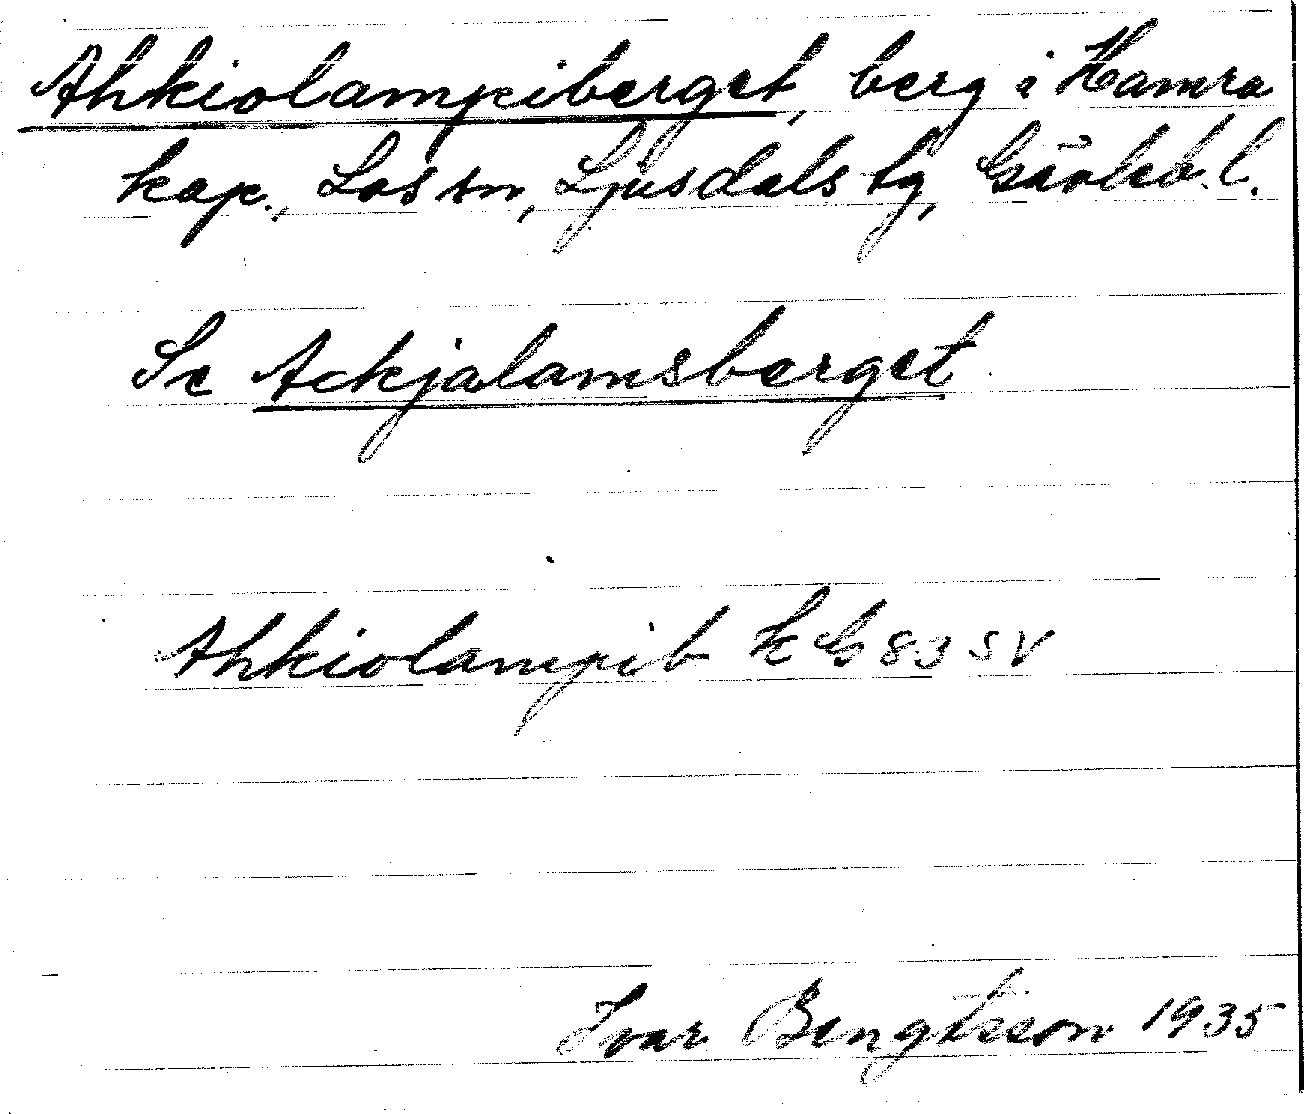 Ahkiolampiberget, berg i Hamra
kap., Los sn, Ljusdals tg, Gävleb. l.
Se Ackjalamsberget
Ahkiolampib k G 83 SV
Ivar Bengtsson 1935